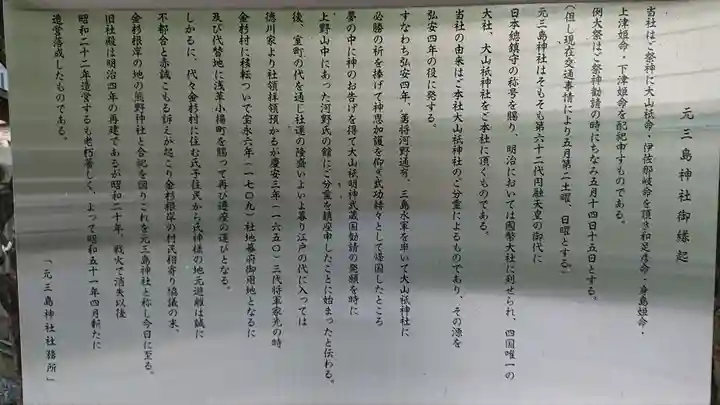 元三島神社御縁起
当社はご祭神に大山祇命・伊佐那岐命を頂き和足彦命・身島姫命・
上津姫命・下津姫命を配祀申すものである。
例大祭はご祭神勧請の時にちなみ五月十四日十五日とする。
（但し現在交通事情により五月第二土曜、日曜とする）
元三島神社はそもそも第六十二代円融天皇の御代に
日本總鎮守の称号を賜り、明治においては國幣大社に列せられ、四国唯一の
大社、大山祇神社をご本社に頂くものである。
当社の由来はご本社大山祇神社のご分霊によるものであり、その源を
弘安四年の役に発する。
すなわち弘安四年、勇将河野通有、三島水軍を率いて大山祇神社に
必勝の祈を捧げて神恩加護を仰ぎ武功赫々として帰国したところ
夢の中に神のお告げを得て大山祇明神武蔵国勧請の発願を時に
上野山中にあった河野氏の館にご分霊を鎮座申したことに始まったと伝わる。
後、室町の代を通じ社運の隆盛いよいよ暮り江戸の代に入っては
徳川家より社領拝領預かるが慶安三年（一六五〇）三代将軍家光の時
金杉村に移転ついで宝永六年（一七〇九）社地幕府御用地となるに
及び代替地に浅草小揚町を賜って再び遷座の運びとなる。
しかるに、代々金杉村に住む氏子住民から氏神様の地元遊離は誠に
不都合と赤誠こもる訴えが起こり金杉根岸の村民相寄り協議の末、
金杉根岸の地の熊野神社と合祀を図りこれを元三島神社と称し今日に至る。
旧社殿は明治四年の再建であるが昭和二十年、戦火で消失以後
昭和二十二年造営するも老朽著しく、よって昭和五十一年四月新たに
造営落成したものである。
「元三島神社社務所」